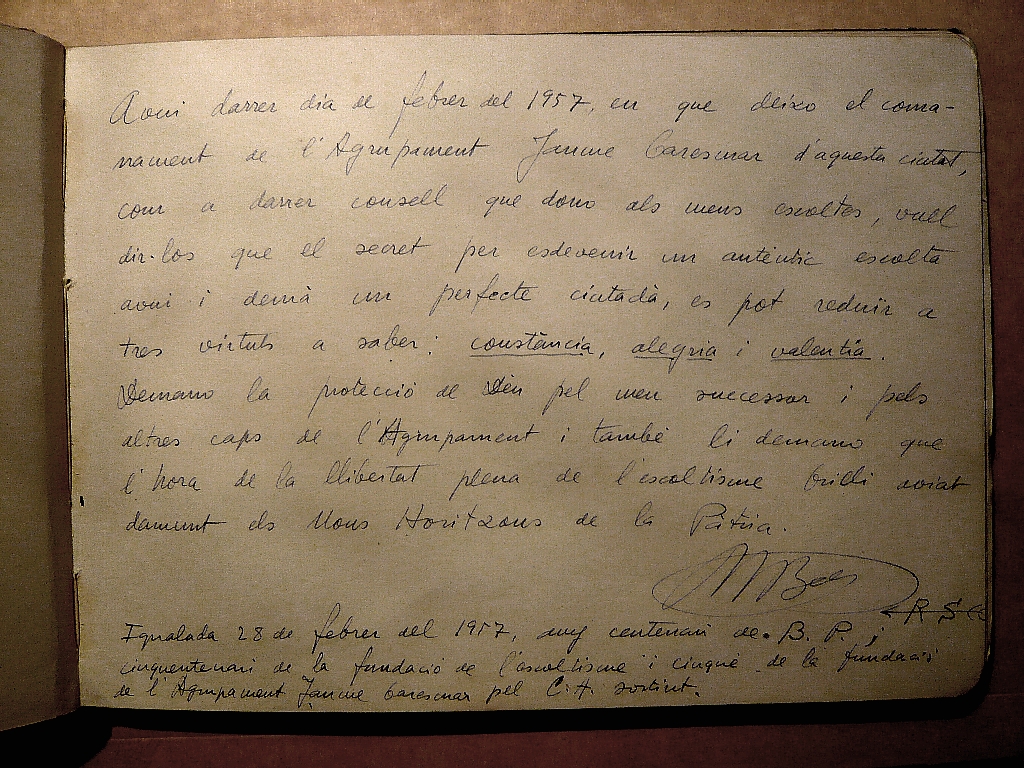 Avui darrer dia de febrer del 1957, en que deixo el coma-
nament de l'Agrupament Jaume Caresmar d'aquesta ciutat,
com a darrer consell que dono als meus escoltes, vull
dir-los que el secret per esdevenir un autèntic escolta
avui i demà un perfecte ciutadà, es pot reduïr a
tres virtuts a saber: constància, alegria i valentia.
Demano la protecció de Déu pel meu successor i pels
altres caps de l'Agrupament i també li demano que
l'hora de la llibertat plena de l'escoltisme brilli aviat
damunt els Nous Horitzons de la Pàtria.
R S
Igualada 28 de febrer del 1957, any centenari de B. P. i
cinquentenari de la fundació de l'escoltisme i cinquè de la fundació
de l'Agrupament Jaume Caresmar pel C.A. sortint.